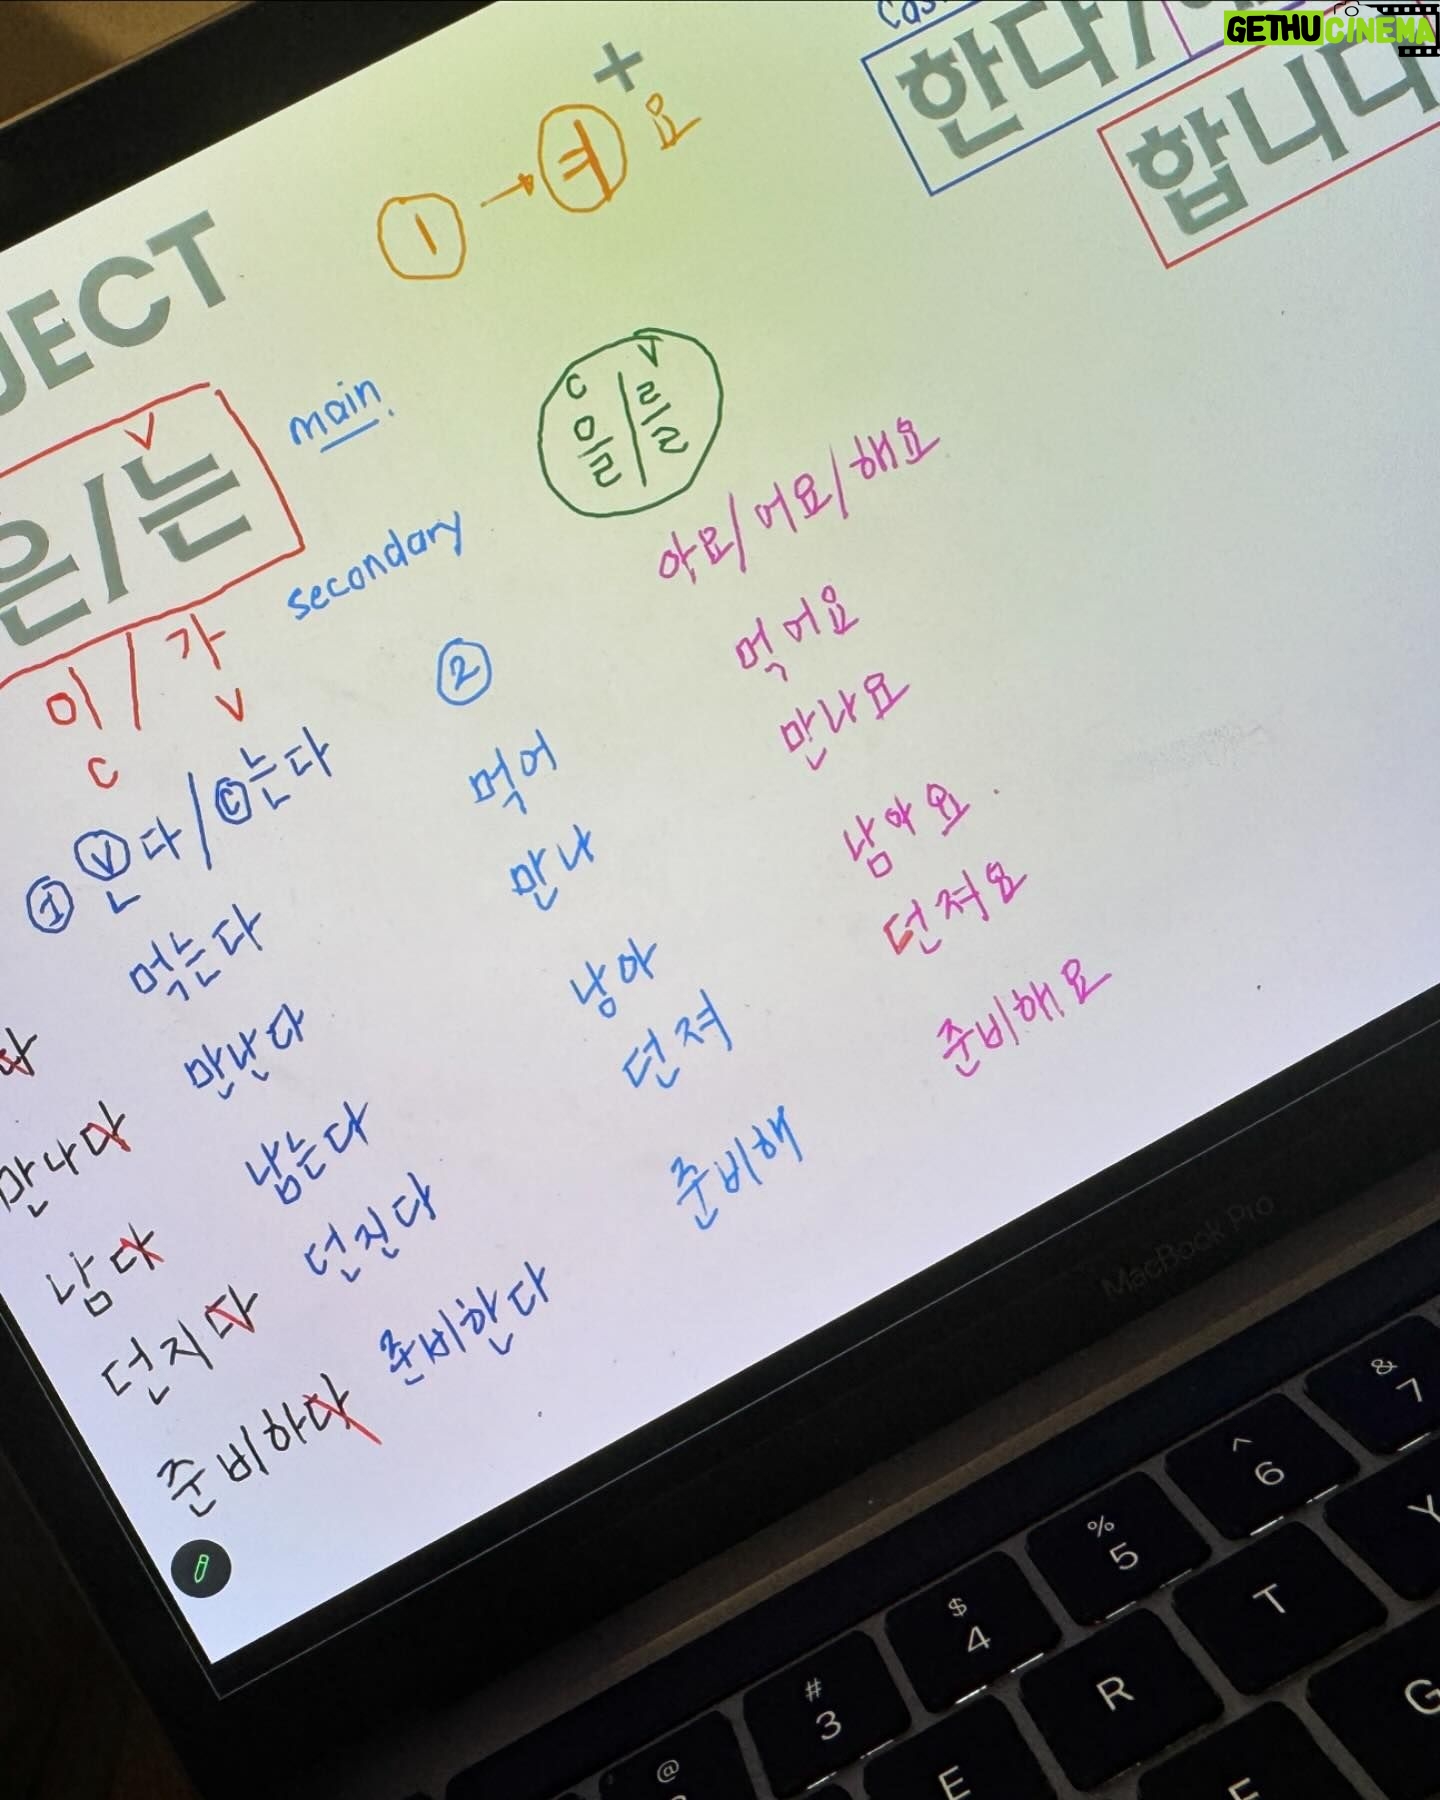 GETHUCINEMA
+
한다/
합니다
ㅣ → ㅕ 요
JECT
main.
C V
을 / 를
V
은/는
secondary
이 / 가
C V
아요/어요/해요
① Ⓥㄴ다/Ⓒ는다
②
먹는다 먹어 먹어요
만나다 만난다 만나 만나요
남다 남는다 남아 남아요.
던지다 던진다 던져 던져요
준비하다 준비한다 준비해 준비해요
MacBook Pro
@
# 3
$ 4
% 5
^ 6
& 7
E R T Y
G